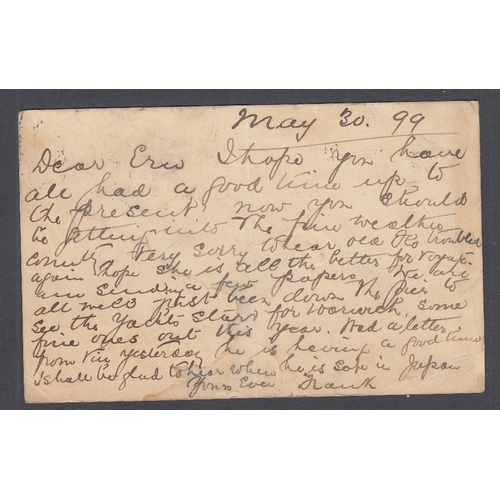 May 30. 99
Dear Ern I hope you have
all had a good time up to
the present now you should
be getting into the fine weather
Very sorry to hear old troubled
again hope she is all the better for voyage.
am sending a few papers We are
all well just been down the Pier to
see the Yachts Start for Harwich, some
fine ones out this year. Had a letter
from yesterday he is having a good time
I shall be glad to hear when he is safe in Japan
Yours Ever Frank